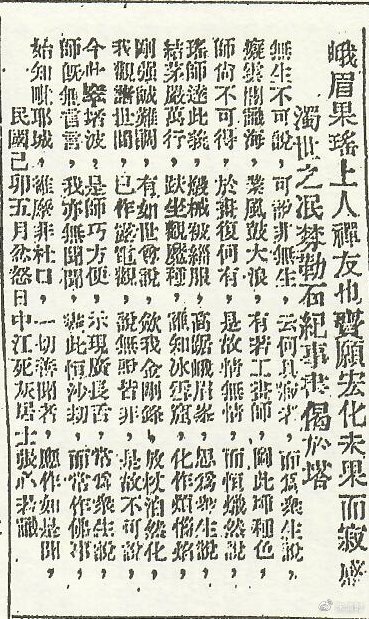 峨眉果瑤上人禪友也賫願宏化未果而寂感
濁世之泯棼勒石紀事聿偈於塔
無生不可說，可說非無生，云何具壽者，而爲衆生說，
癡雲閣識海，業風鼓大浪，有若工畫師，圖此種種色，
師尙不可得，於畫復何有，是故情無情，而恒熾然說，
瑤師達此義，機械被緇服，高踞峨眉峯，思爲衆生說，
結茅嚴萬行，趺坐觀魔種，誰知冰雪窟，化作煩惱焰，
剛强誠難調，有如世尊說，歛我金剛鋒，放杖泊然化，
我觀諸世間，已作露電觀，說無說皆非，是故不可說，
今此窣塔波，是師巧方便，示現廣長舌，常爲衆生說，
師旣無言言，我亦無聞聞，此恒沙劫，而常作佛事，
始知毗耶城，維摩非杜口，一切善聞者，應作如是聞，
民國己卯五月忿怒日中江死灰居士張心若